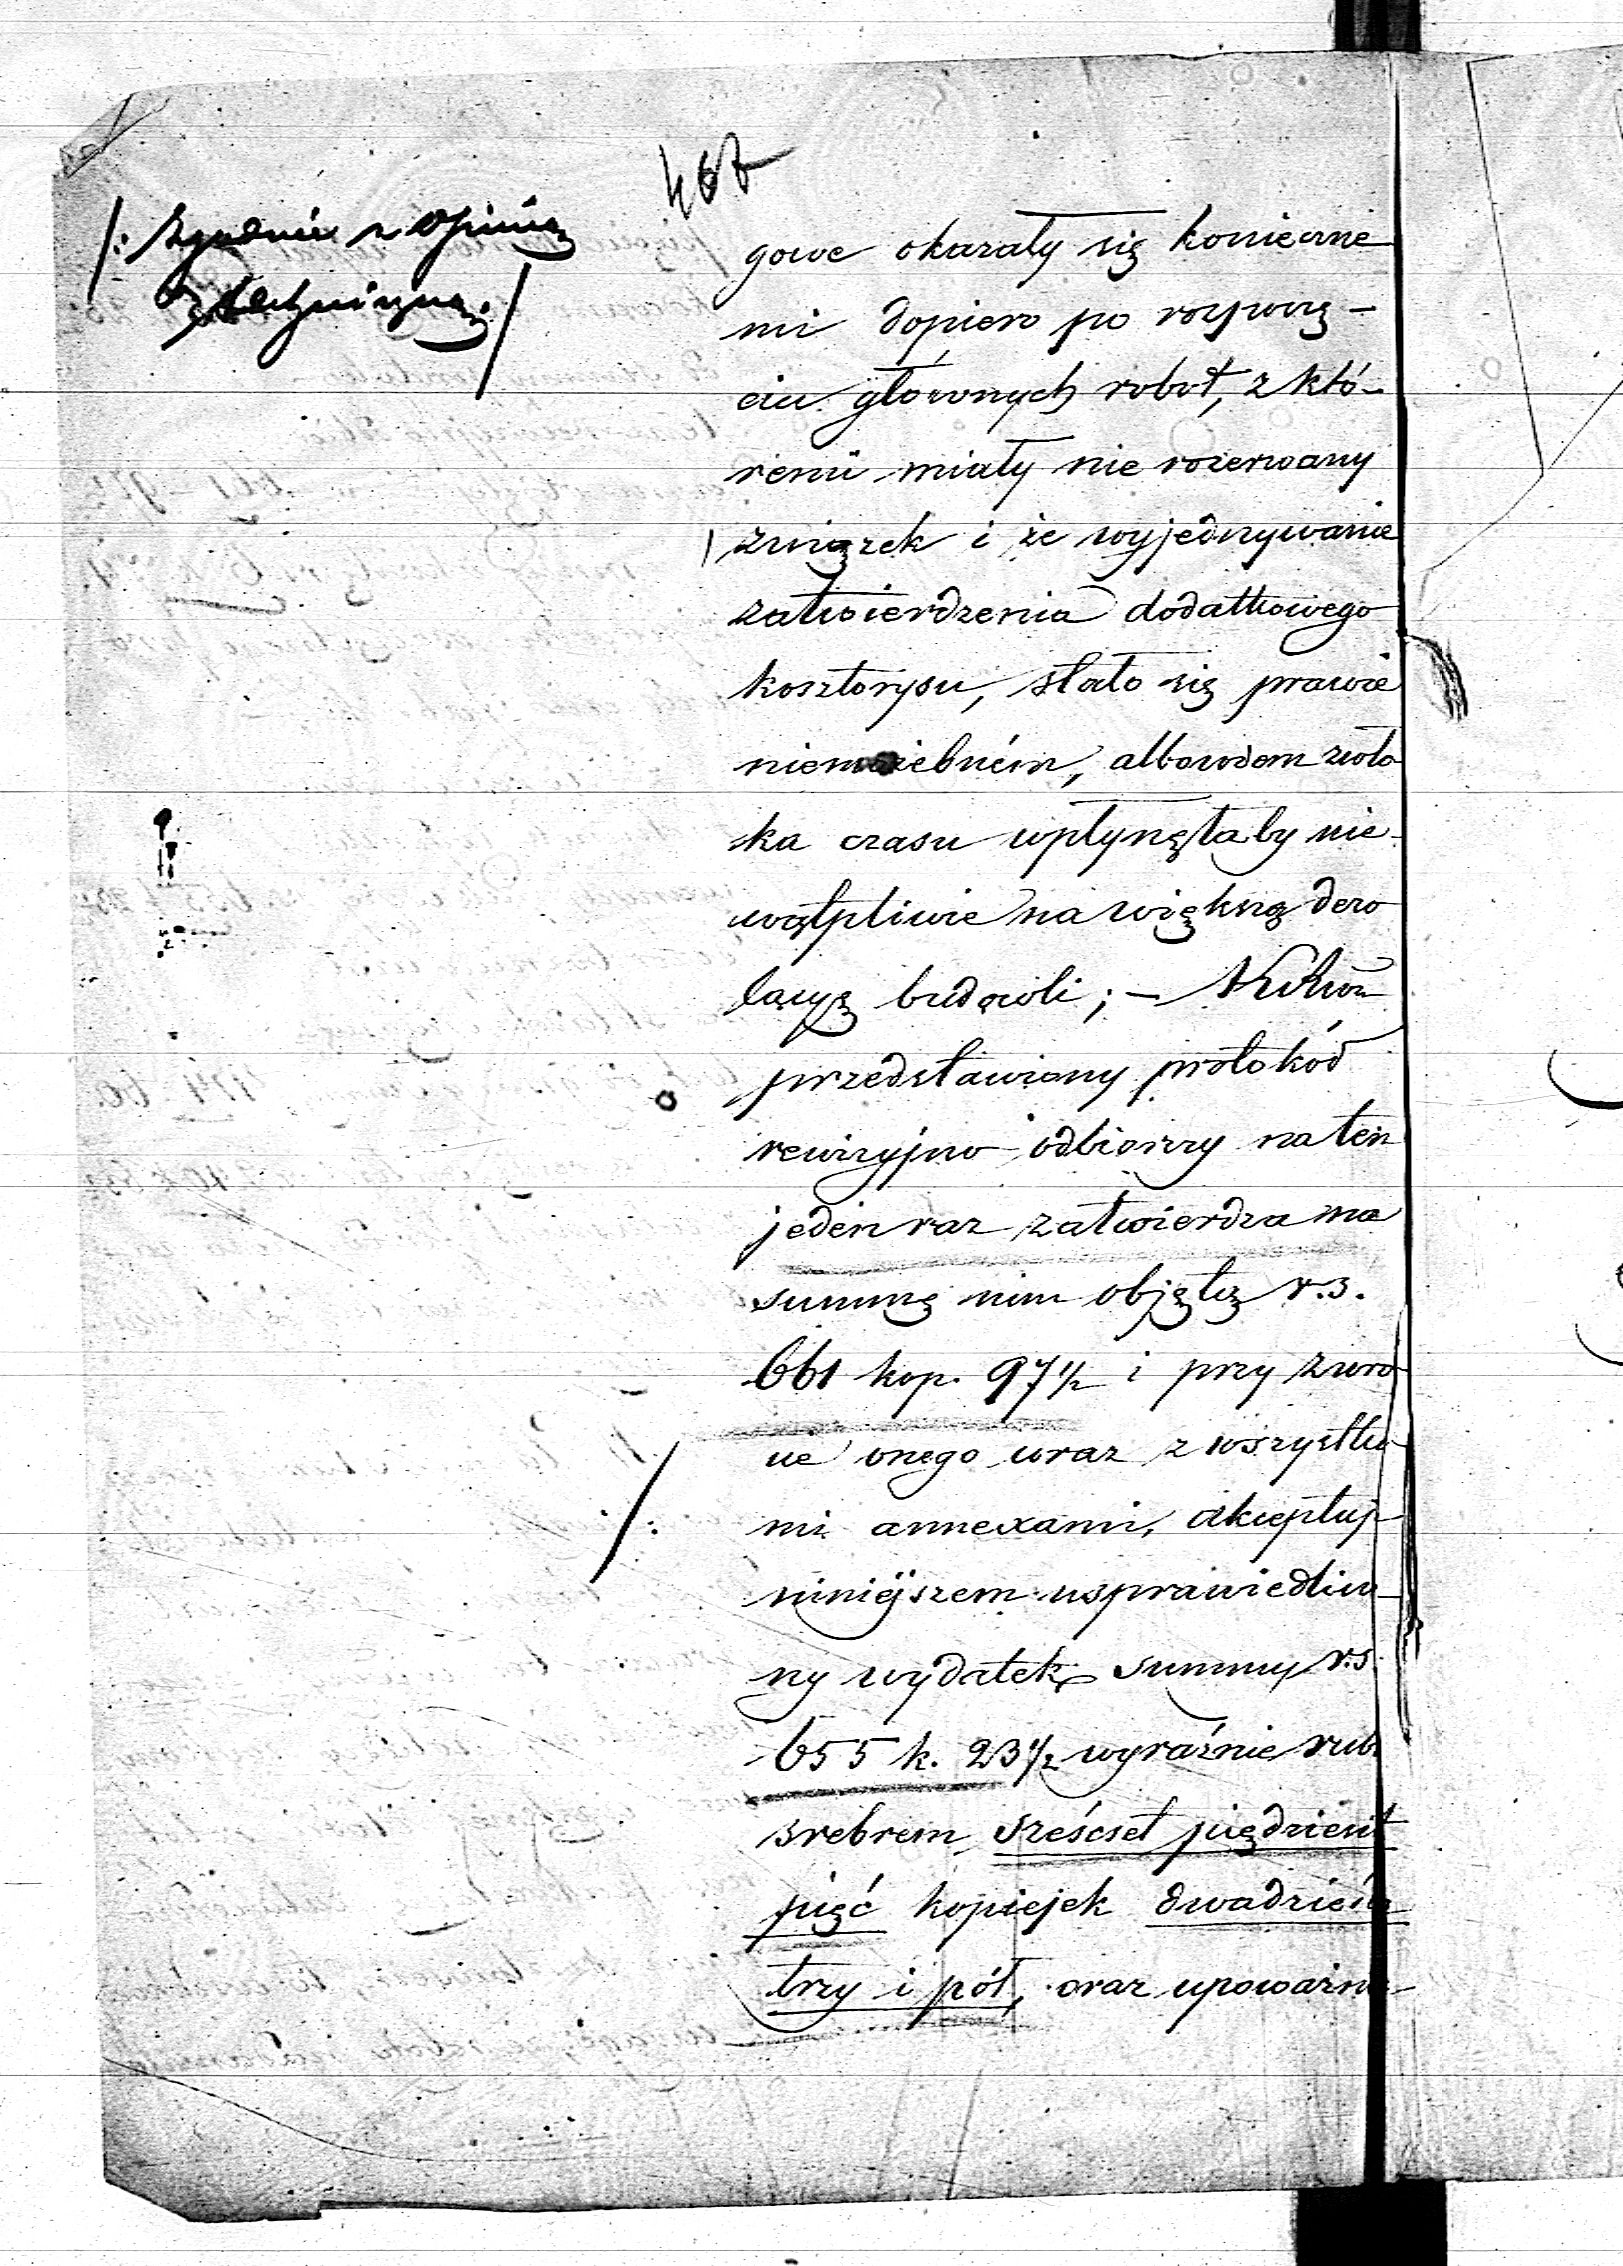 /: zgodnie z Opinią
techniczną :/
gowe okazały się konieczne
mi dopiero po rozpoczę-
ciu głównych robot, z któ-
remi miały nie rozerwany
związek i że wyjednywanie
zatwierdzenia dodatkowego
kosztorysu, stało się prawie
niemożebném, albowiem zwło
ka czasu wpłynęłaby nie-
wątpliwie na większą dezo
lacyą budowli; –
przedstawiony protokół
rewizyjno odbiorczy na ten
jeden raz zatwierdza na
summę nim objętą r.s.
661 kop. 97½ i przy zwro
cie onego wraz z wszystkie
mi annexami, akceptuje
niniejszem usprawiedliwio
ny wydatek summy r.s.
655 k. 23½ wyraźnie rub.
srebrem sześćset piędziesiąt
pięć kopiejek dwadzieścia
trzy i pół, oraz upoważnia